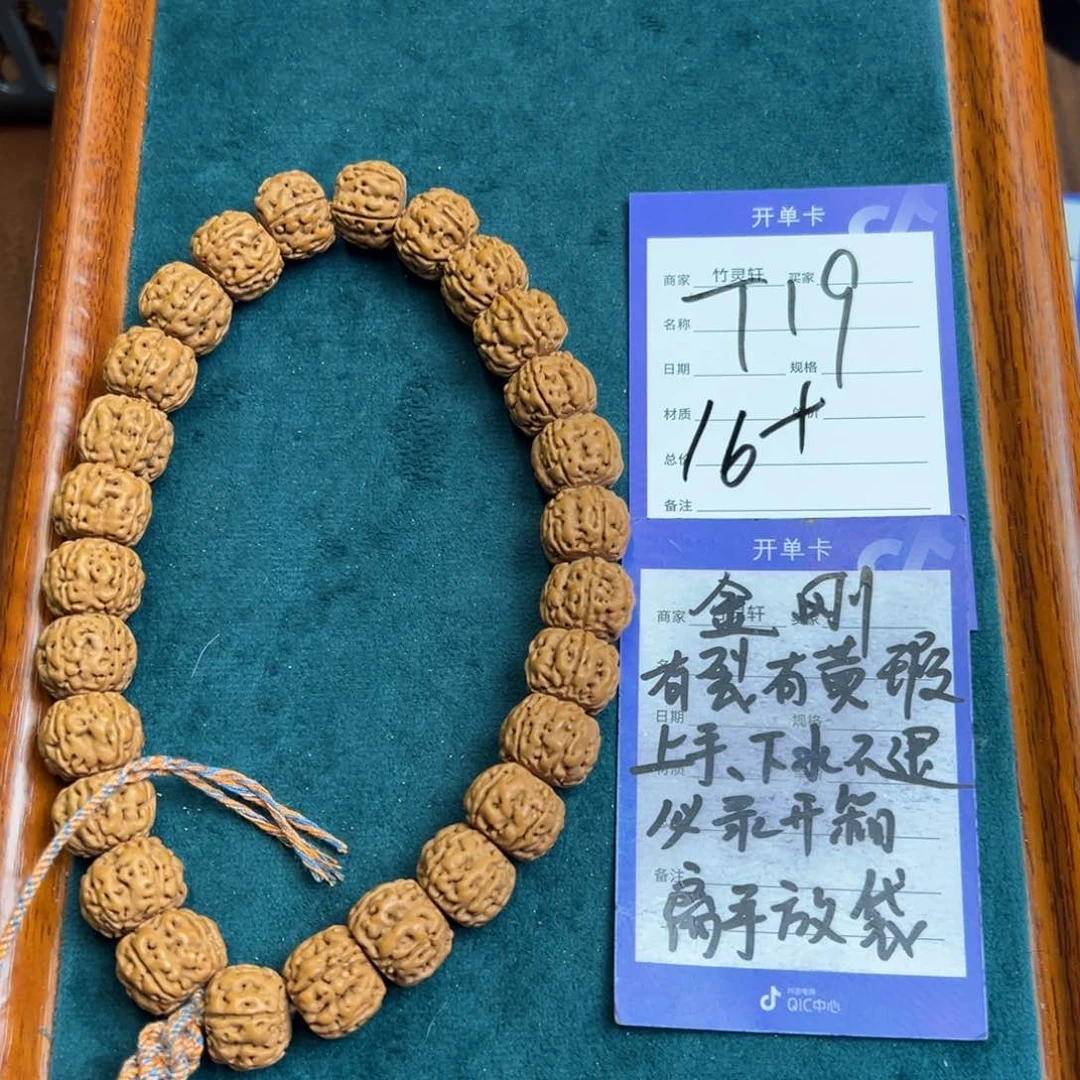 开单卡
商家 竹灵轩 买家
T19
名称
日期 规格
材质
16+
总价
备注
开单卡
商家 轩
金刚
有裂有黄瑕
日期 规格
上手、下水不退
材质
必录开箱
备注
离手放袋
抖音电商
QIC中心